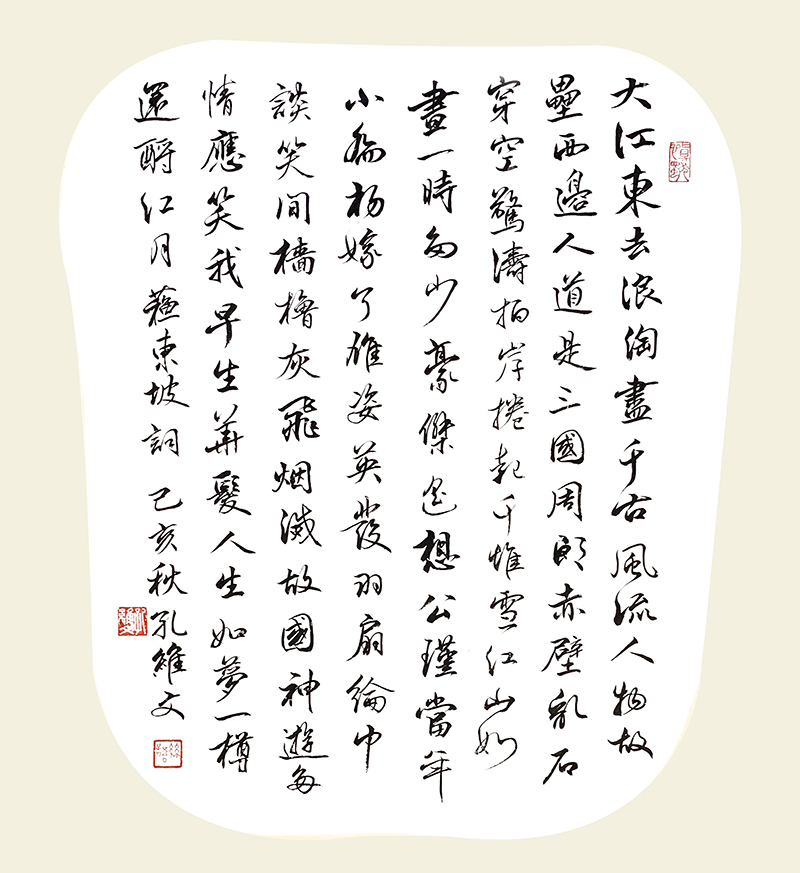 大江東去浪淘盡千古風流人物故
壘西邊人道是三國周郎赤壁亂石
穿空驚濤拍岸捲起千堆雪江山如
畫一時多少豪傑遙想公瑾當年
小喬初嫁了雄姿英發羽扇綸巾
談笑間檣櫓灰飛烟滅故國神遊多
情應笑我早生華髮人生如夢一樽
還酹江月蘇東坡詞 己亥秋孔維文